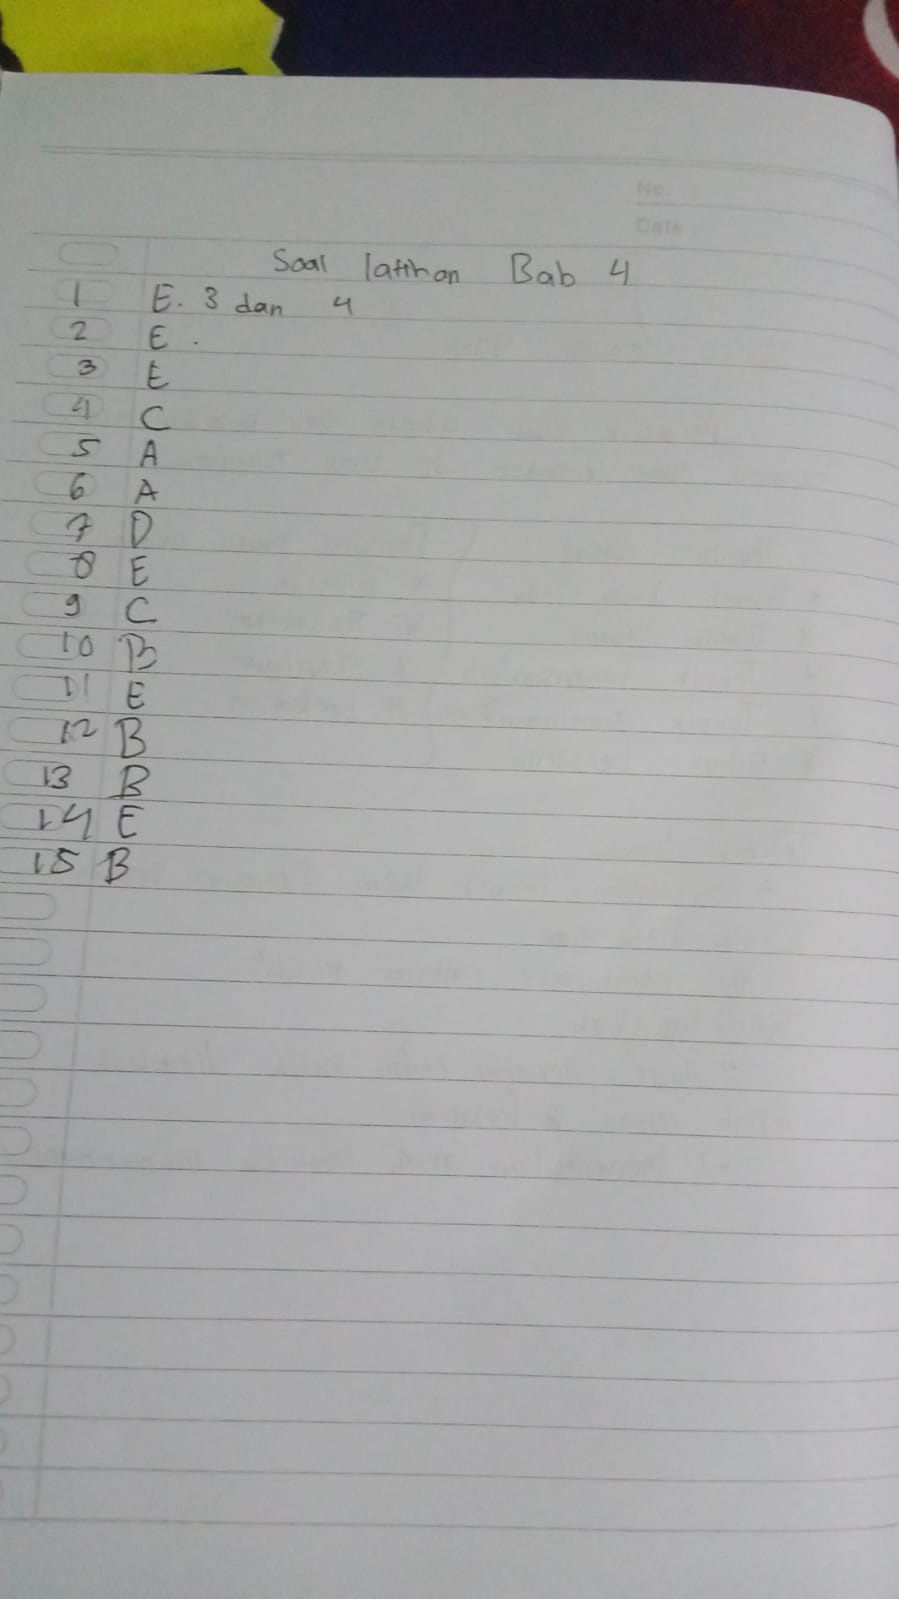 No. :
Date :
Soal latihan Bab 4
1 E. 3 dan 4
2 E.
3 E
4 C
5 A
6 A
7 D
8 E
9 C
10 B
11 E
12 B
13 B
14 E
15 B